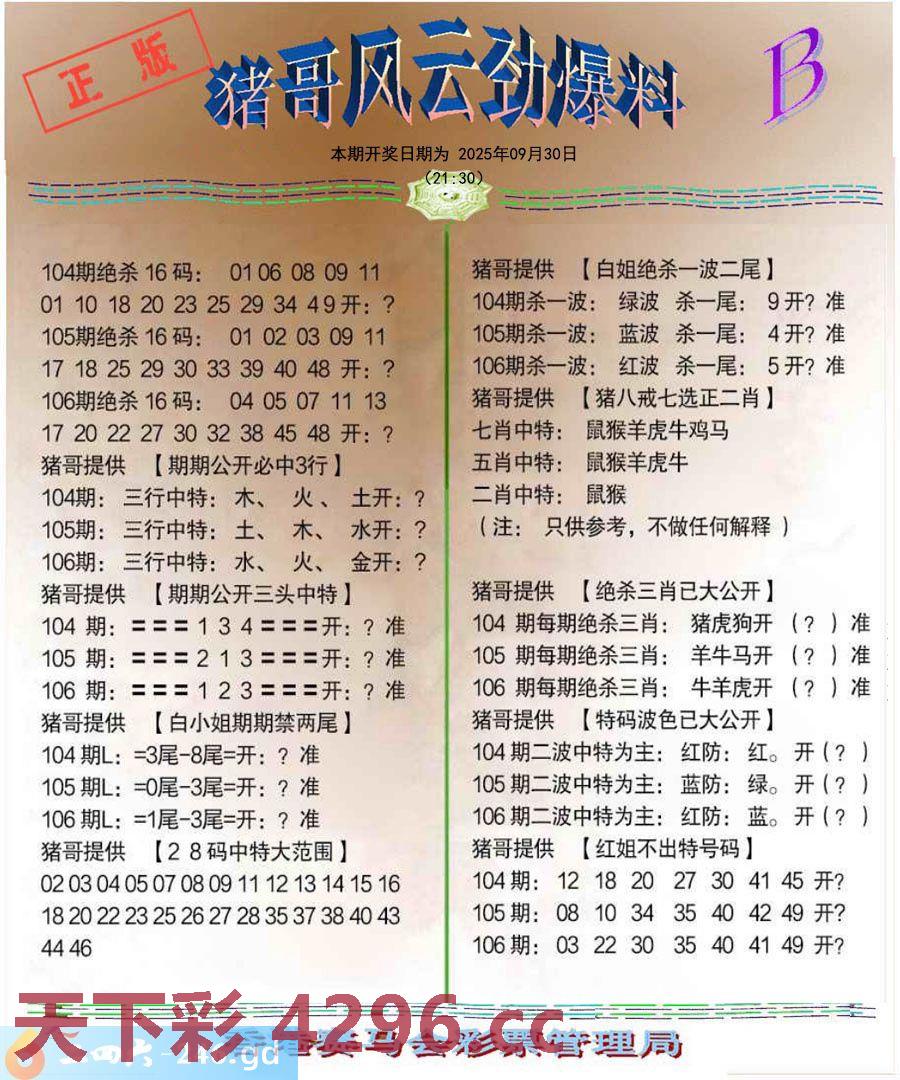 正版
猪哥风云劲爆料
B
本期开奖日期为 2025年09月30日
(21:30)
104期绝杀16码： 01 06 08 09 11
01 10 18 20 23 25 29 34 49开：?
105期绝杀16码： 01 02 03 09 11
17 18 25 29 30 33 39 40 48 开：?
106期绝杀16码： 04 05 07 11 13
17 20 22 27 30 32 38 45 48 开：?
猪哥提供 【期期公开必中3行】
104期：三行中特：木、 火 、 土开：?
105期：三行中特：土、 木、 水开：?
106期：三行中特：水、 火、 金开：?
猪哥提供 【期期公开三头中特】
104 期：〓〓〓1 3 4〓〓〓开：? 准
105 期：〓〓〓2 1 3〓〓〓开：? 准
106 期：〓〓〓1 2 3〓〓〓开：? 准
猪哥提供 【白小姐期期禁两尾】
104期L：=3尾-8尾=开：? 准
105期L：=0尾-3尾=开：? 准
106期L：=1尾-3尾=开：? 准
猪哥提供 【28码中特大范围】
02 03 04 05 07 08 09 11 12 13 14 15 16
18 20 22 23 25 26 27 28 35 37 38 40 43
44 46
猪哥提供 【白姐绝杀一波二尾】
104期杀一波： 绿波 杀一尾： 9开? 准
105期杀一波： 蓝波 杀一尾： 4开? 准
106期杀一波： 红波 杀一尾： 5开? 准
猪哥提供 【猪八戒七选正二肖】
七肖中特： 鼠猴羊虎牛鸡马
五肖中特： 鼠猴羊虎牛
二肖中特： 鼠猴
（注： 只供参考，不做任何解释 ）
猪哥提供 【绝杀三肖已大公开】
104 期每期绝杀三肖： 猪虎狗开 （? ）准
105 期每期绝杀三肖： 羊牛马开 （? ）准
106 期每期绝杀三肖： 牛羊虎开 （? ）准
猪哥提供 【特码波色已大公开】
104期二波中特为主：红防：红。开（? ）
105期二波中特为主：蓝防：绿。开（? ）
106期二波中特为主：红防：蓝。开（? ）
猪哥提供 【红姐不出特号码】
104期： 12 18 20 27 30 41 45 开?
105期： 08 10 34 35 40 42 49 开?
106期： 03 22 30 35 40 41 49 开?
天下彩 4296.cc
马会彩票管理局